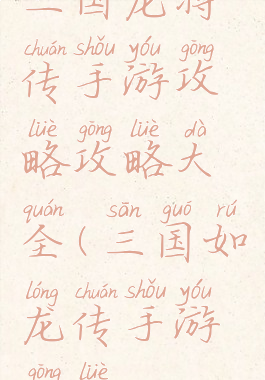 三国龙将
chuán shǒu yóu gōng
传手游攻
lüè gōng lüè dà
略攻略大
quán sān guó rú
全(三国如
lóng chuán shǒu yóu
龙传手游
gōng lüè